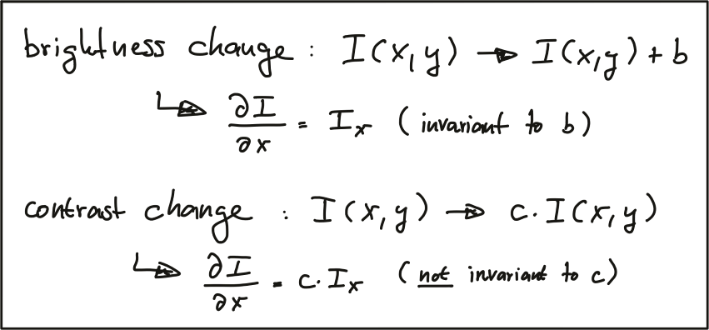 brightness change : I(x,y) → I(x,y) + b
↳ ∂I/∂x = Ix (invariant to b)
contrast change : I(x,y) → c·I(x,y)
↳ ∂I/∂x = c·Ix (not invariant to c)